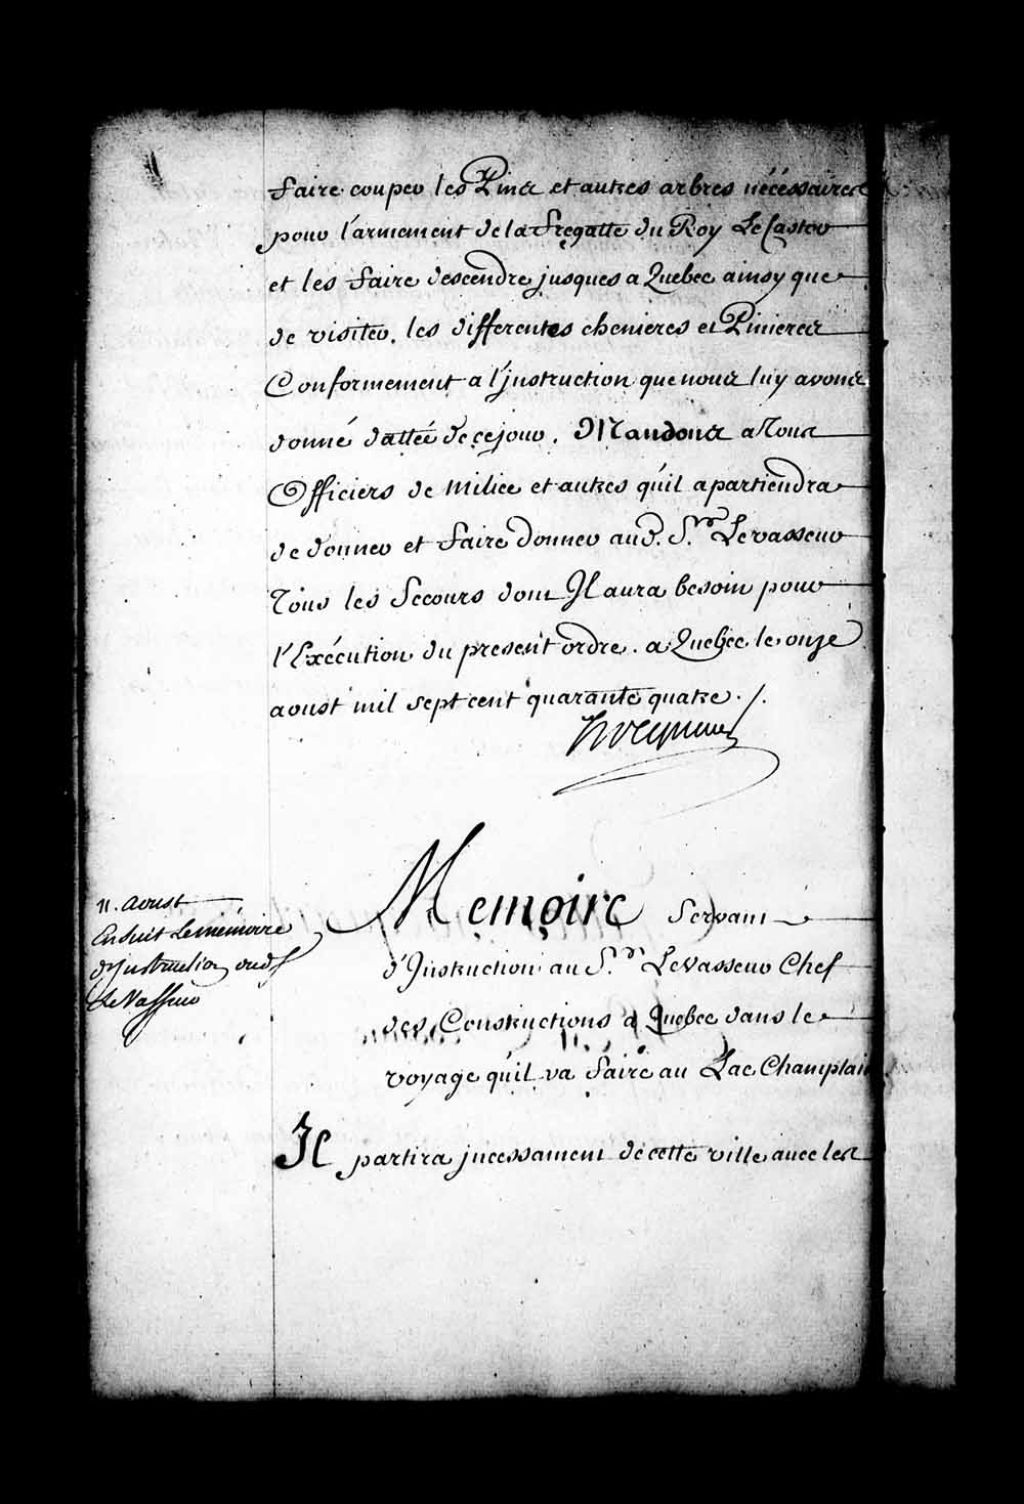 faire couper les Pins et autres arbres nécéssaires
pour l'armement de la fregatte du Roy Le Castor
et les faire descendre jusques a Quebec ainsy que
de visiter les differentes chenieres et Pinieres
Conformement a l'jnstruction que nous luy avons
donné dattée de ce jour. Mandons a Tous
Officiers de milice et autres qu'il apartiendra
de donner et faire donner aud. S.r Levasseur
Tous les Secours dont Il aura besoin pour
l'Exécution du present ordre. a Quebec le onze
aoust mil sept cent quarante quatre ./.
Hocquart
11. Aoust
Ensuit Le mémoire
d'Instruction aud S.
Le Vasseur
Memoire Servant
d'Instruction au S.r LeVasseur Chef
des Constructions a Quebec dans le
voyage qu'il va faire au Lac Champlain
Il partira jncessament de cette ville avec les